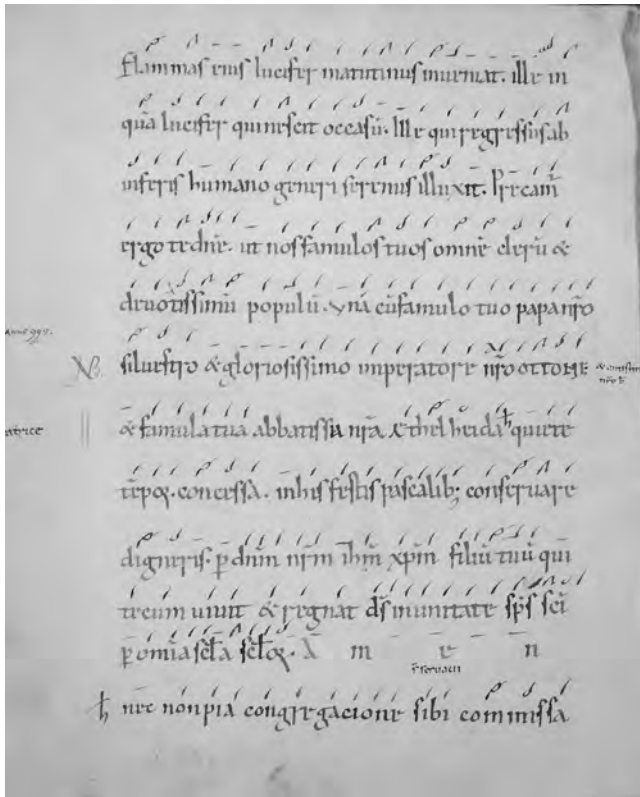 flammas eius lucifer matutinus inueniat. ille in
quā lucifer qui nescit occasū. Ille qui regressus ab
inferis humano generi serenus illuxit. Precam̄
ergo te dn̄e. ut nos famulos tuos omnē clerū &
deuotissimū populū. una cū famulo tuo papa nr̄o
anno 999.
siluestro & gloriosissimo imperatore nr̄o OTTONE
& famula tua abbatissa nr̄a Æthelheida quiete
tēpoꝝ. concessa. in his festis pascalib; conseruare
digneris. ꝑ dnm̄ nr̄m ih̄m xp̄m filiū tuū qui
tecum uiuit & regnat ds̄ in unitate sp̄s sc̄i
ꝑ om̄ia scl̄a scl̄oꝝ. A m e n
nec non pia congregacione sibi commissa